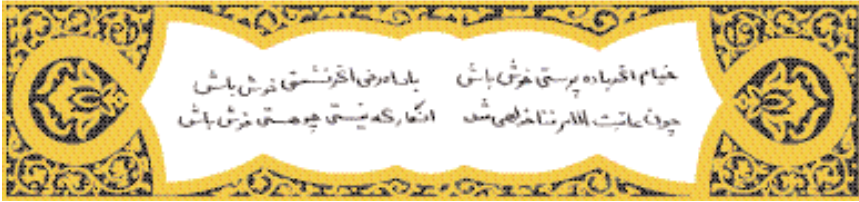 خیام اگر باده پرستی خوش باش با ماهرخی اگر نشستی خوش باش
چون عاقبت الامر فنا خواهی شد انگار که نیستی چو هستی خوش باش